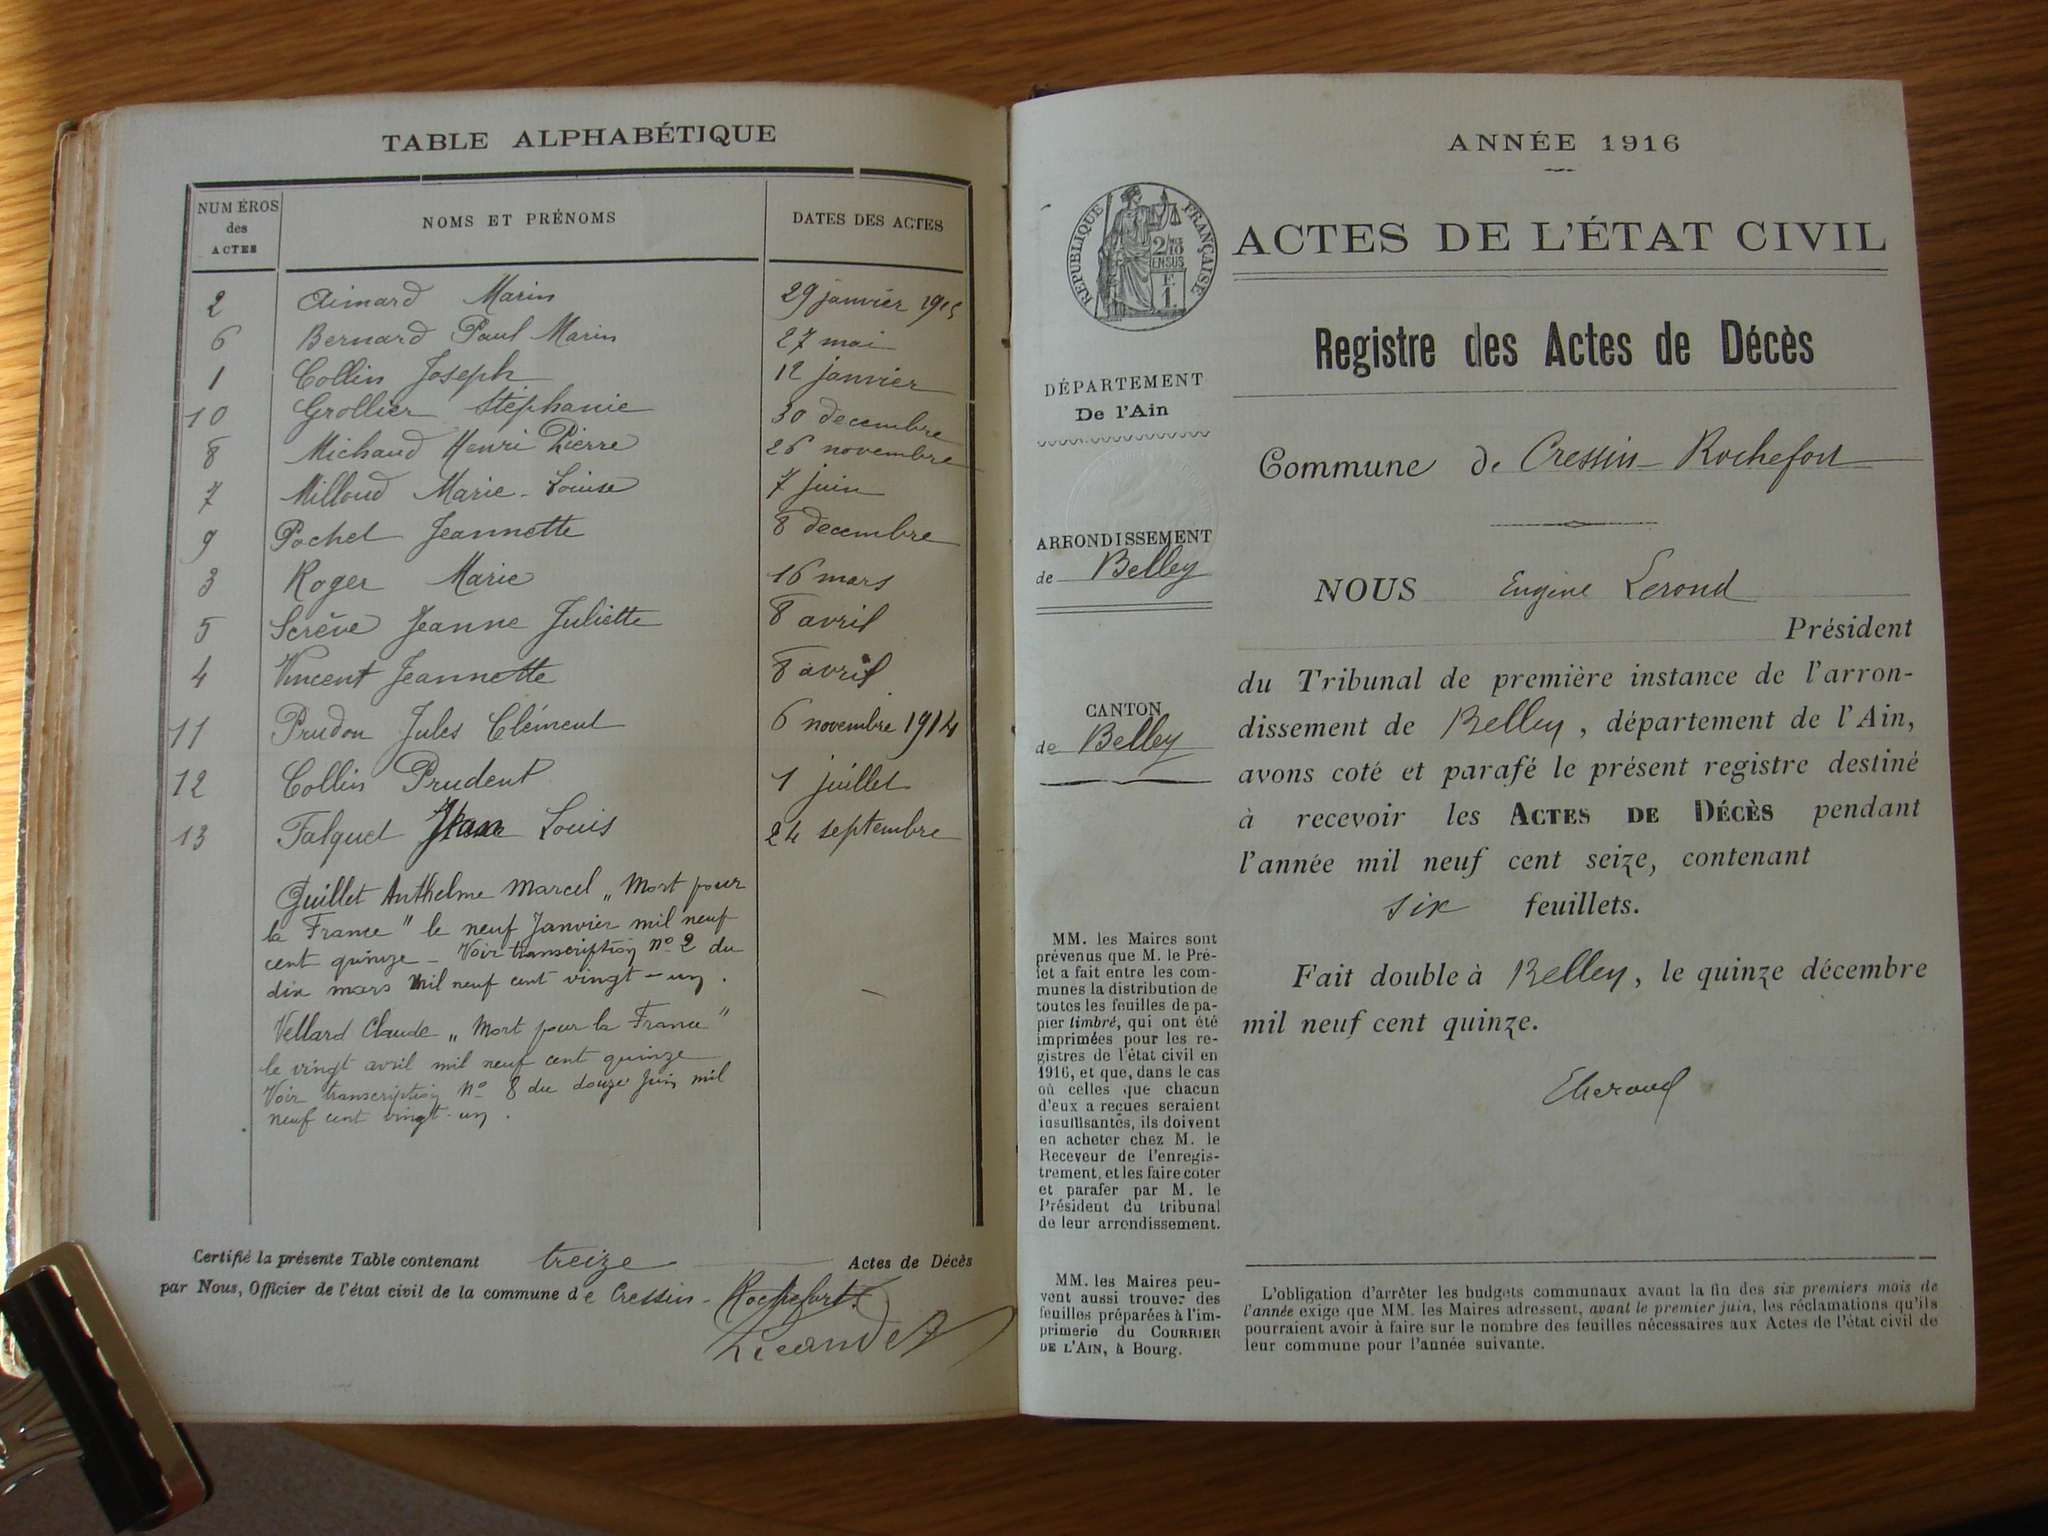 TABLE ALPHABÉTIQUE
NUMÉROS des ACTES NOMS ET PRÉNOMS DATES DES ACTES
2 Aimard Marin 29 janvier 1915
6 Bernard Paul Marin 27 mai
1 Collin Joseph 12 janvier
10 Grollier Stéphanie 30 decembre
8 Michaud Henri Pierre 26 novembre
7 Milloud Marie-Louise 7 juin
9 Pochet Jeannette 8 decembre
3 Roger Marie 16 mars
5 Scrève Jeanne Juliette 8 avril
4 Vincent Jeannette 8 avril
11 Prudon Jules Clément 6 novembre 1914
12 Collin Prudent 1 juillet
13 Falquet Louis 24 septembre
Guillet Anthelme Marcel „ Mort pour
la France " le neuf Janvier mil neuf
cent quinze - Voir transcription n° 2 du
dix mars Mil neuf cent vingt-un.
Vellard Claude „ Mort pour la France "
le vingt avril mil neuf cent quinze
Voir transcription n° 8 du douze Juin mil
neuf cent vingt-un.
Certifié la présente Table contenant treize Actes de Décès
par Nous, Officier de l'état civil de la commune de Cressin-Rochefort
ANNÉE 1916
RÉPUBLIQUE FRANÇAISE
2/10 EN SUS
E
1.
ACTES DE L'ÉTAT CIVIL
Registre des Actes de Décès
DÉPARTEMENT
De l'Ain
Commune de Cressin-Rochefort
ARRONDISSEMENT
de Belley
CANTON
de Belley
NOUS Eugène Lerond
Président
du Tribunal de première instance de l'arron-
dissement de Belley, département de l'Ain,
avons coté et parafé le présent registre destiné
à recevoir les ACTES DE DÉCÈS pendant
l'année mil neuf cent seize, contenant
six feuillets.
Fait double à Belley, le quinze décembre
mil neuf cent quinze.
MM. les Maires sont
prévenus que M. le Pré-
fet a fait entre les com-
munes la distribution de
toutes les feuilles de pa-
pier timbré, qui ont été
imprimées pour les re-
gistres de l'état civil en
1916, et que, dans le cas
où celles que chacun
d'eux a reçues seraient
insuffisantes, ils doivent
en acheter chez M. le
Receveur de l'enregis-
trement, et les faire coter
et parafer par M. le
Président du tribunal
de leur arrondissement.
MM. les Maires peu-
vent aussi trouver des
feuilles préparées à l'im-
primerie du COURRIER
DE L'AIN, à Bourg.
L'obligation d'arrêter les budgets communaux avant la fin des six premiers mois de
l'année exige que MM. les Maires adressent, avant le premier juin, les réclamations qu'ils
pourraient avoir à faire sur le nombre des feuilles nécessaires aux Actes de l'état civil de
leur commune pour l'année suivante.